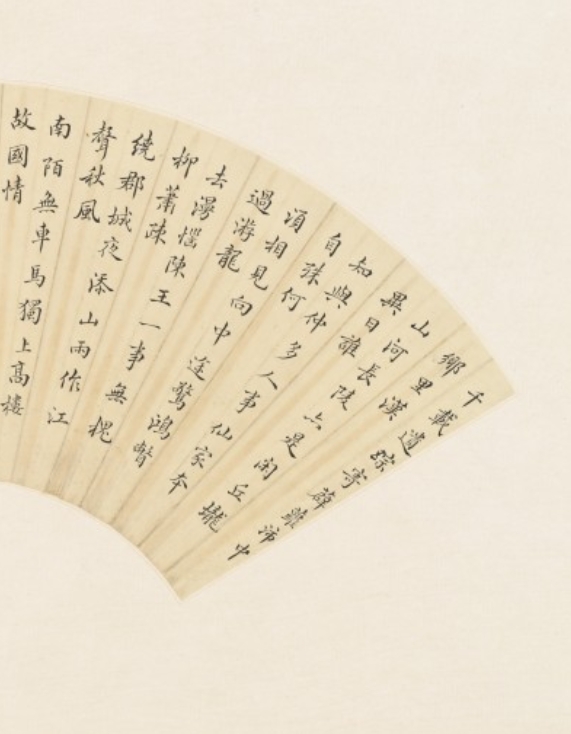 千載遺踪寄薜蘿沛中
鄉里漢
山河長陵亦是閑丘壠
異日誰
知與仲多人事仙家本
自殊何
須相見向中途驚鴻瞥
過游龍
去漫惱陳王一事無槐
柳蕭疎
繞郡城夜添山雨作江
聲秋風
南陌無車馬獨上高樓
故國情